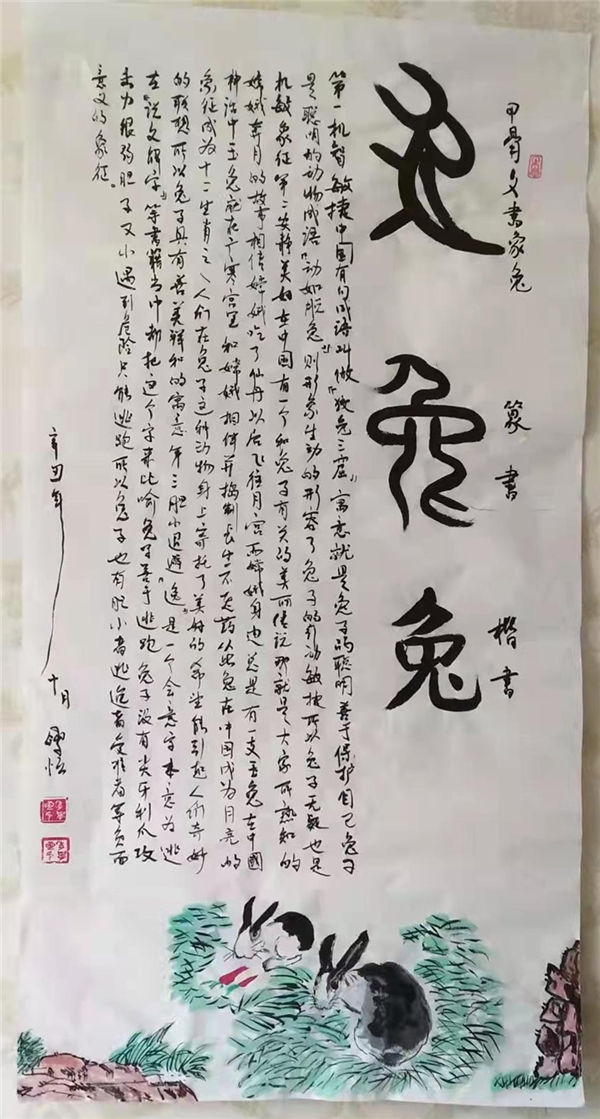 甲骨文書象兔
篆書
楷書
兔
兔
兔
第一机智敏捷中国有句成语叫做"狡兔三窟"寓意就是兔子的聪明善于保护自己兔子
是聪明的动物成语"动如脱兔"则形象生动的形容了兔子的行动敏捷所以兔子无疑也是
机敏象征第二安静美好在中国有一个和兔子有关的美丽传说那就是大家所熟知的
嫦娥奔月的故事相传嫦娥吃了仙丹以后飞往月宫而嫦娥身边总是有一支玉兔在中国
神话中玉兔就在广寒宫里和嫦娥相伴并捣制长生不老药从此兔在中国成为月亮的
象征成为十二生肖之一人们在兔子这种动物身上寄托了美好的希望能引起人们奇妙
的联想所以兔子具有善美祥和的寓意第三胆小退避"逸"是一个会意字本意为逃
在"说文解字"等书籍当中都把这个字来比喻兔子善于逃跑兔子没有尖牙利爪攻
击力很弱胆子又小遇到危险只能逃跑所以兔子也有胆小者逃逸者受难者等负面
意义的象征。
辛丑年
十月